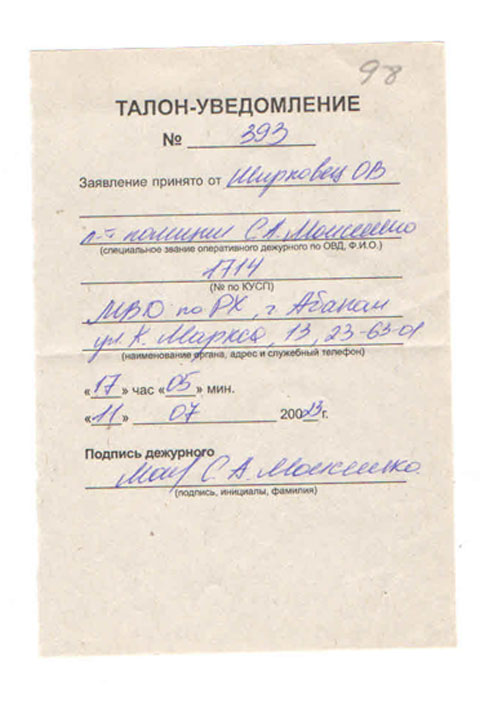 98
ТАЛОН-УВЕДОМЛЕНИЕ
№ 393
Заявление принято от Ширковец ОВ
л-т полиции С.А. Моисеенко
(специальное звание оперативного дежурного по ОВД, Ф.И.О.)
1714
(№ по КУСП)
МВД по РХ, г Абакан
ул. К. Маркса, 13, 23-63-01
(наименование органа, адрес и служебный телефон)
«17» час «05» мин.
«11» 07 20023г.
Подпись дежурного
С.А. Моисеенко
(подпись, инициалы, фамилия)